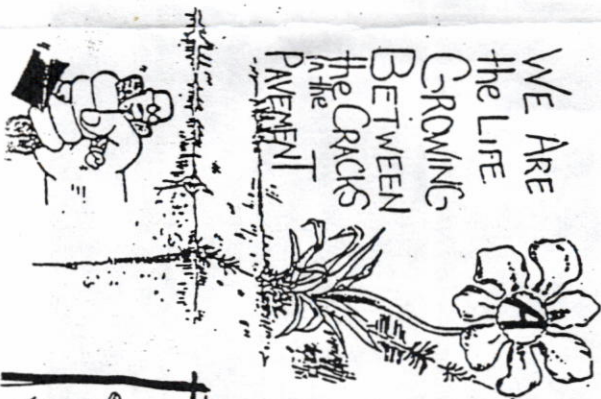 WE ARE
the LIFE
GROWING
BETWEEN
the CRACKS
in the
PAVEMENT
A